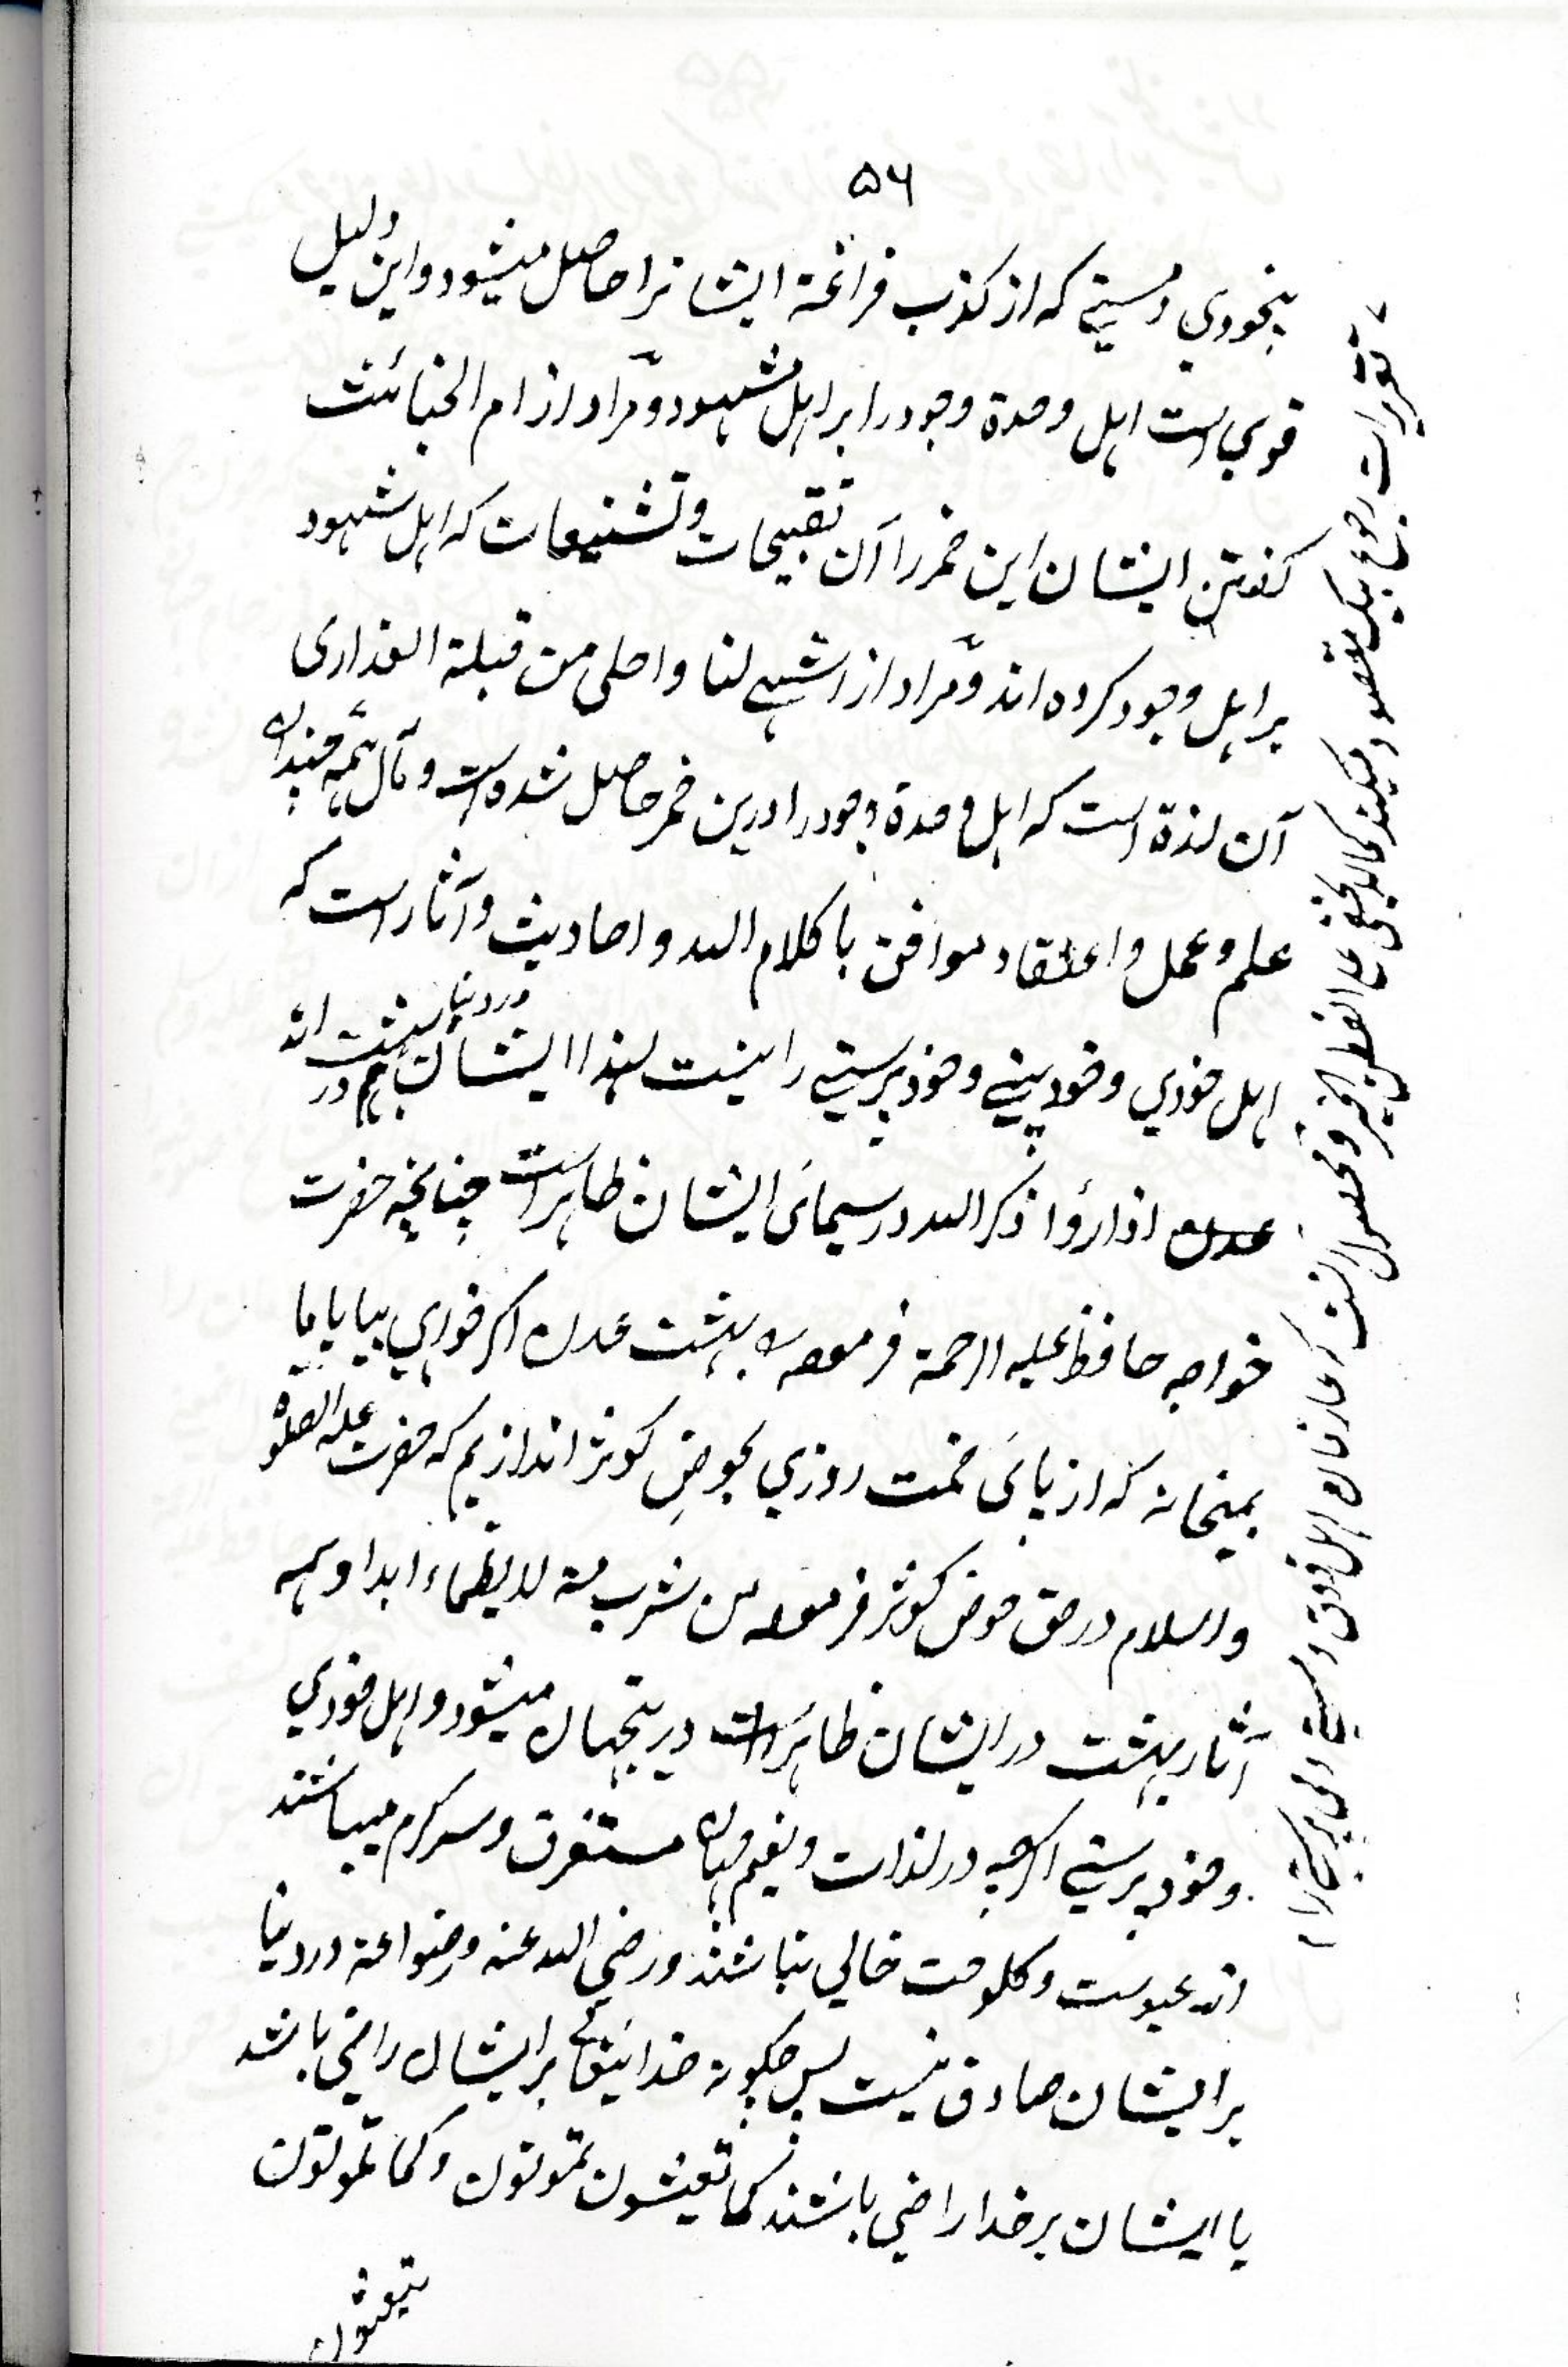 ۵۶
بیخودي و مستیٔ که از کذب فراغة ایشانرا حاصل میشود و این دلیل
قوي است اهل وحدة وجود را بر اهل شهود و مراد از ام الخبائث
کفتن ایشان این خمر را آن تقبیحات و تشنیعات که اهل شهود
بر اهل وجود کرده اند و مراد از اشهی لنا و احلی من قبلة العذاری
آن لذة است که اهل وحدة وجود را درین خمر حاصل شده است و مآل همه
علم و عمل و اعتقاد موافق با کلام الله و احادیث و آثار است که
اهل خودي و خودبینے و خودپرستے را نیست لهذا ایشان هم در دنیا در بهشت اند
اذا رؤا ذکر الله در سیمائ ایشان ظاهر است چنانچه حضرت
خواجه حافظ علیه الرحمة فرموده بهشت عدن اکر خواهي بیا با ما
بمیخانه که از پائ خمت روزي بحوضِ کوثر اندازیم که حضرت علیه الصلوة
والسلام در حق حوض کوثر فرموده من شرب منه لا یظماء ابدا و همه
آثار بهشت در ایشان ظاهر است درینجهان میشود و اهل خودي
و خودپرستے اکرچه در لذات و نعیم جهان مستغرق و سرکرم میباشند
از عبوست و کلوحت خالي نباشند و رضي الله عنه و رضوا عنه در دنیا
بر ایشان صادق نیست پس چکونه خدایتعالے بر ایشان راضي باشد
یا ایشان بر خدا راضي باشند کما تعیشون تموتون و کما تموتون
تبعثون
تقریرات رجوع بیک مقصود میکند کما لا یخفی علی الفطن الخبیر و محصول آنست که عارفان اهل ذوق و مستیٔ